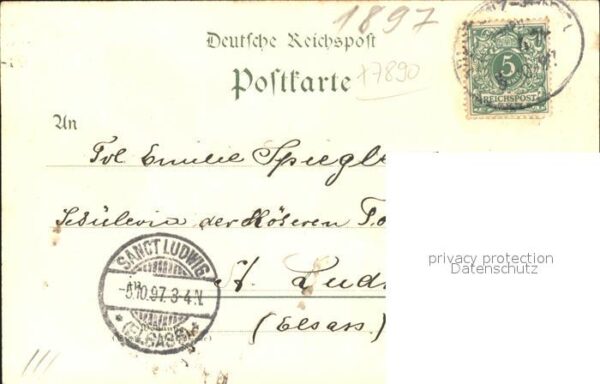 1897
Deutsche Reichspost
+7890
Postkarte
5
REICHSPOST
An
Frl Emilie Spiegl
Schülerin der Höheren To
privacy protection
Datenschutz
SANCT LUDWIG
-5.10.97.3-4.N.
St. Lud
* (ELSASS) *
(Elsass).